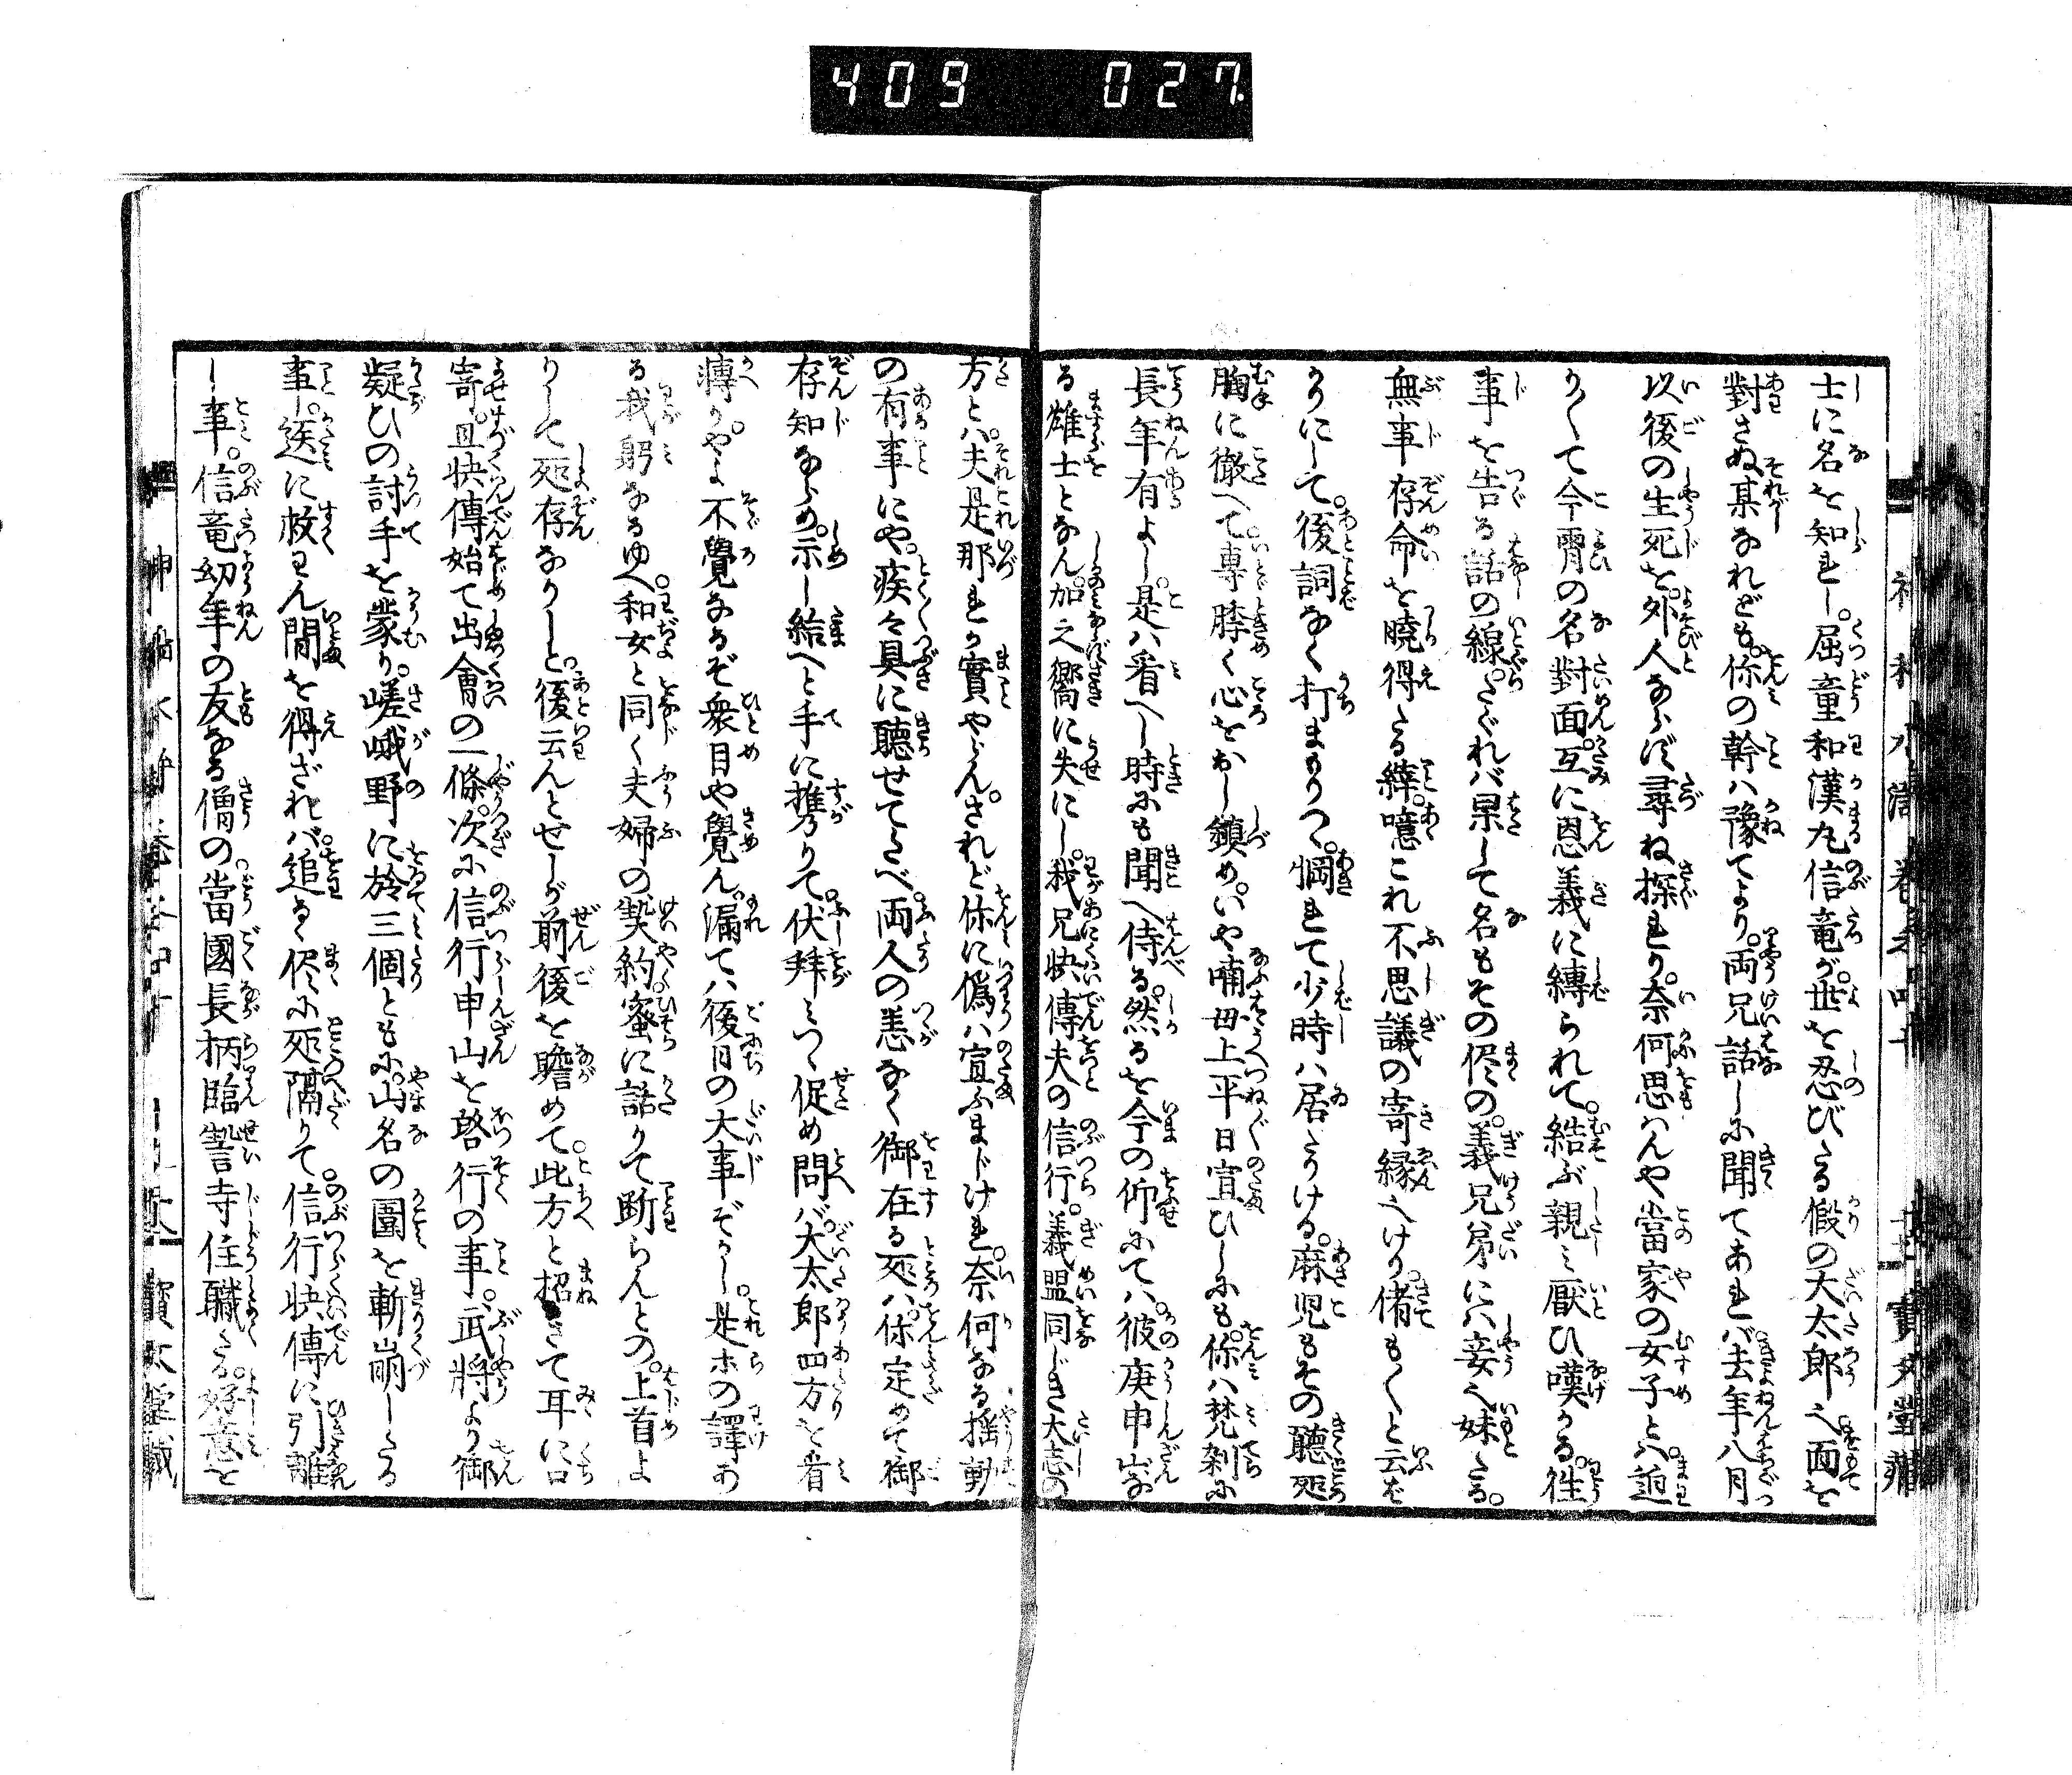 409 027
士に名を知れし。屈童和漢丸信竜が。世を忍びたる假の大太郎之面を
對さぬ某なれども。你の幹ハ豫てより。両兄話しに聞てあれバ。去年八月
以後の生死を。外人ならず尋ね探れり。奈何思ハんや當家の女子とハ。廻
かくて今霄の名對面。互に恩義に縛られて。結ぶ親ミ厭ひ嘆かる。徃
事を告る話の線。たぐれバ果して名もその侭の。義兄弟にハ妾ハ妹たる。
無事存命を曉得たる縡。噫これ不思議の寄縁之けり。偖もくと云ば
かりにして。後詞なく打まもりつゝ。惘れて少時ハ居たりける。麻児もその聽処
胸に徹へて。專䏶く心をおし鎮め。いや喃母上平日宣ひしにも。你ハ梵刹に
長年有よし。是ハ看へし時にも聞へ侍る。然るを今の仰にてハ。彼庚申山お
る雄士となん。加之嚮に失にし。我兄快傳夫の信行。義盟同じき大志の
方とハ。夫是那れか實やらん。されど你に偽ハ宣ふまじけれ。奈何なる揺動
の有事にや。疾々具に聽せてたべ。両人の恙なく御在る処ハ。你定めて御
存知ならめ。示し給へと手に携りて。伏拜ミつゝ促め問バ。大太郎四方を看
轉りやよ。不覺なるぞ衆目や覺ん。漏てハ後日の大事ぞかし。是等の譯あ
る我躬なるゆへ。和女と同く夫婦の契約。蜜に話りて斷らんとの。上首よ
りして処存なりしと。後云んとせしが前後を瞻めて。此方と招きて耳に口
寄。且快傳始て出會の一條。次に信行申山を啓行の事。武将より御
疑ひの討手を蒙り。嵯峨野に於三個ともに。山名の圍を斬崩したる
事。迭に救わん間を得ざれバ。追るゝ侭に処隔りて。信行快傳に引離
し事。信竜幼年の友なる僧の。當國長柄臨誓寺住職たる。好意を